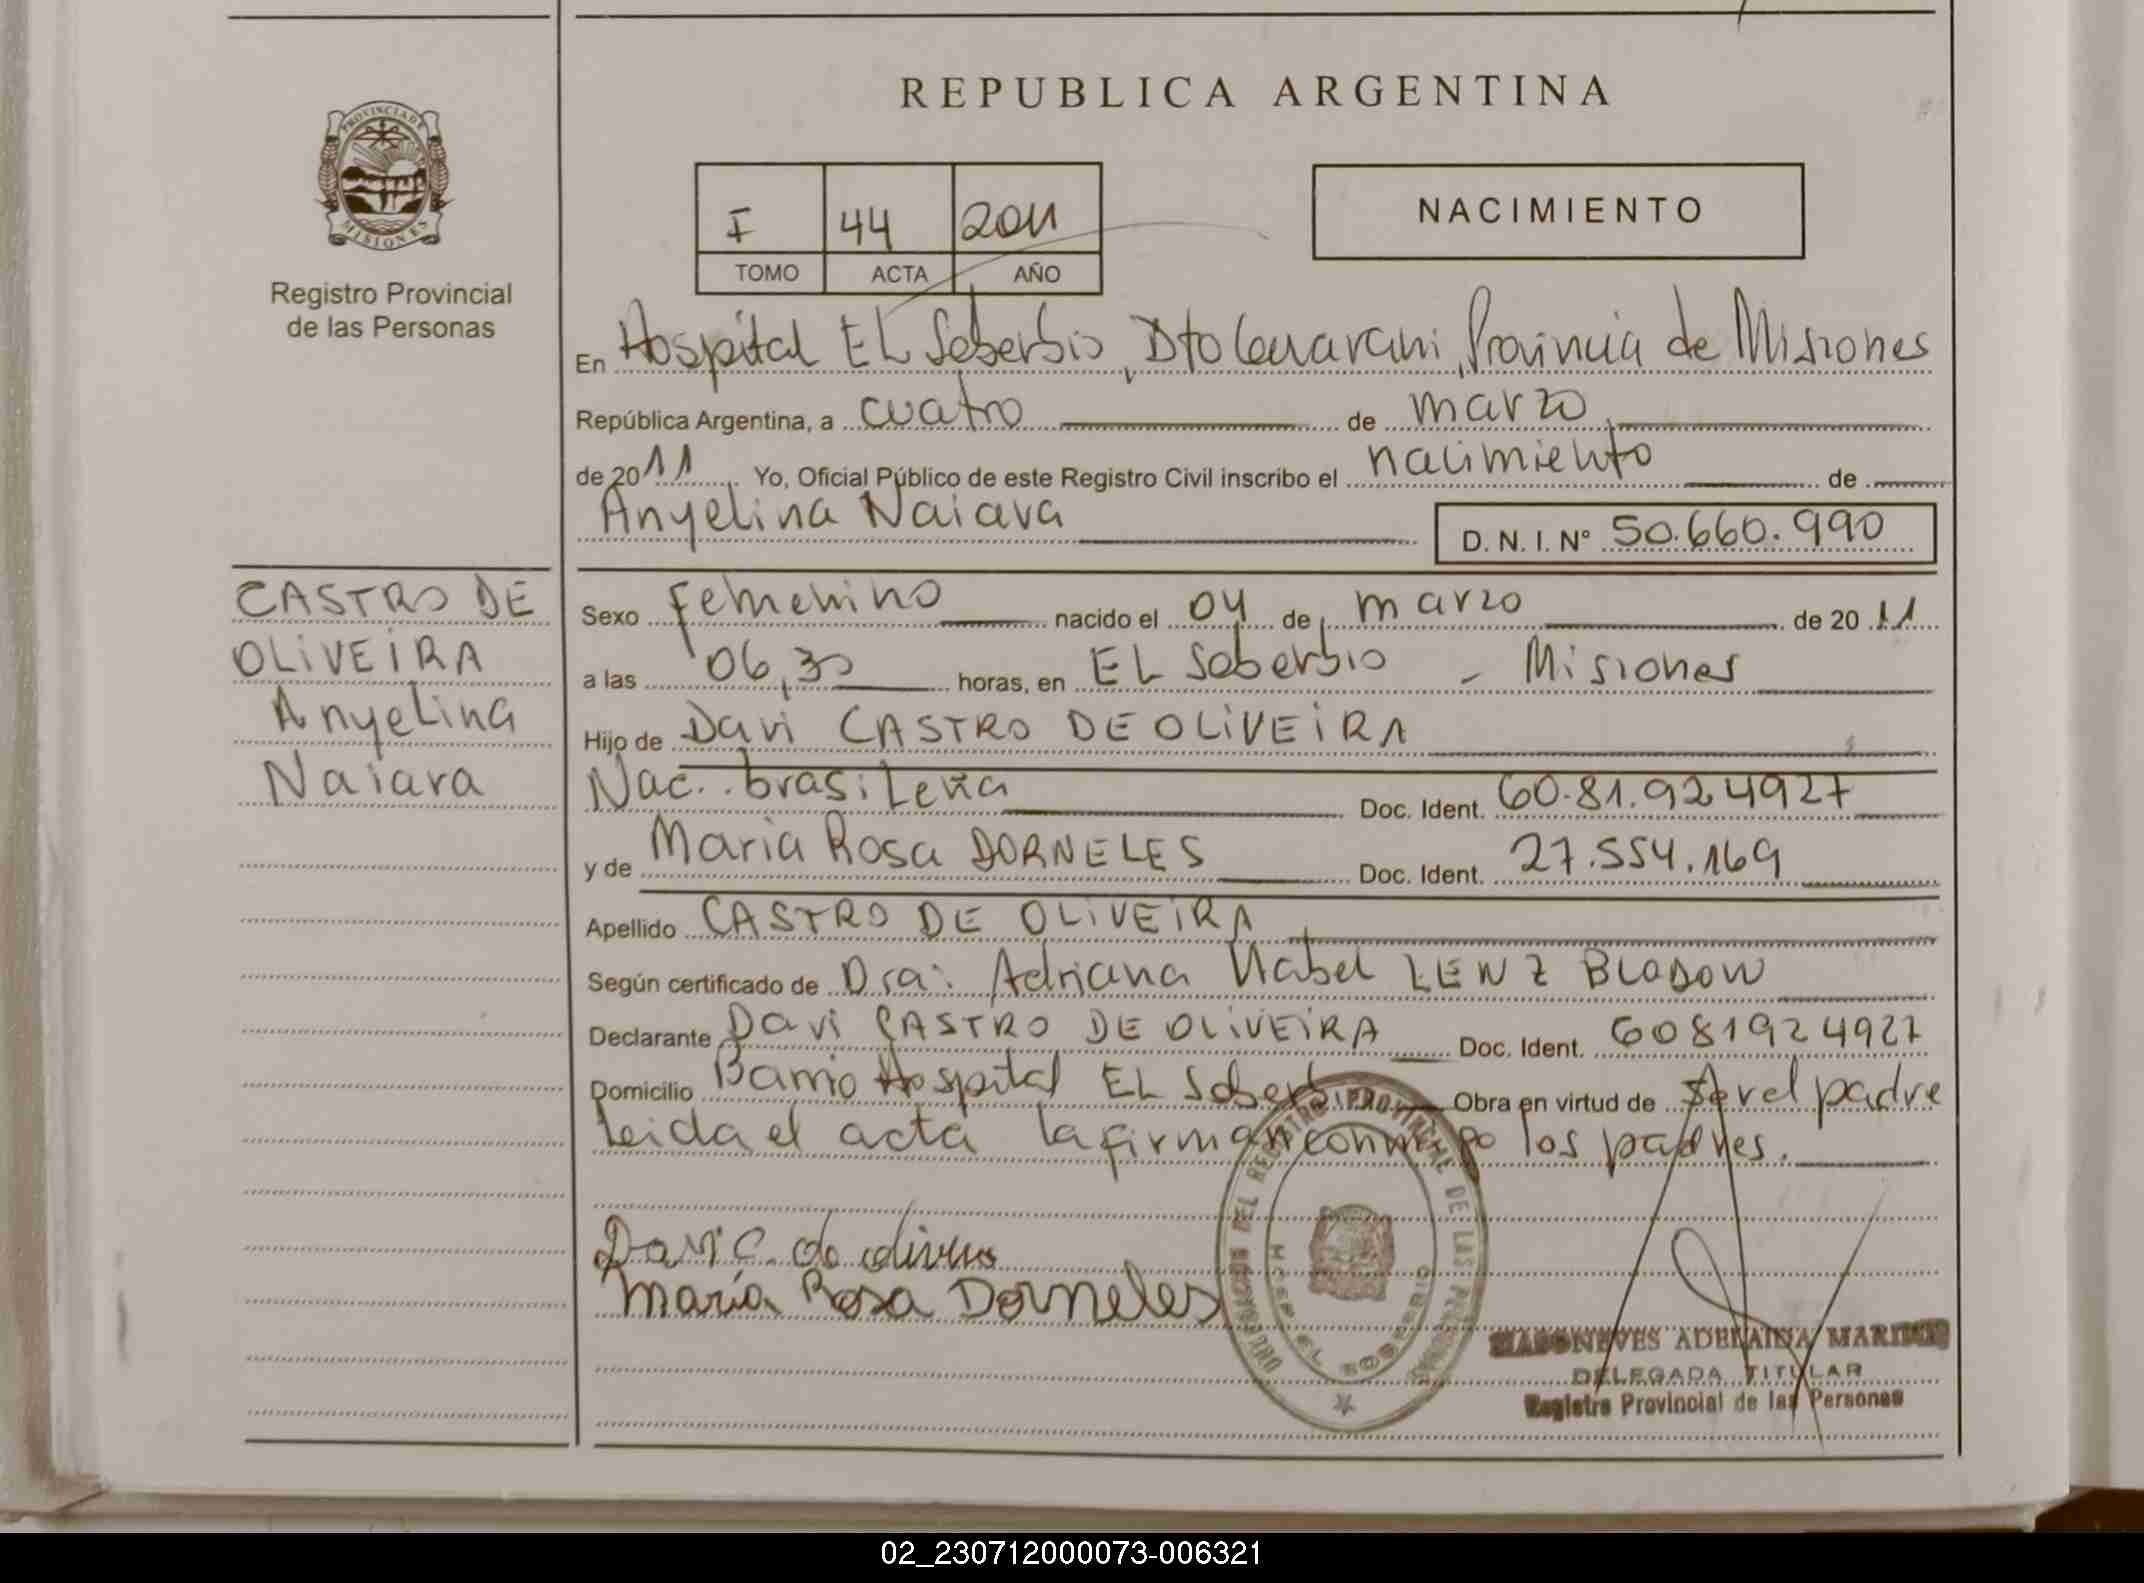 REPUBLICA ARGENTINA
PROVINCIA DE MISIONES
Registro Provincial
de las Personas
I 44 2011
TOMO ACTA AÑO
NACIMIENTO
En Hospital EL Soberbio, Dto Guarani, Provincia de Misiones
República Argentina, a cuatro de marzo
de 2011 Yo, Oficial Público de este Registro Civil inscribo el nacimiento de
Anyelina Naiara
D. N. I. Nº 50.660.990
CASTRO DE
OLIVEIRA
Anyelina
Naiara
Sexo Femenino nacido el 04 de marzo de 2011
a las 06,30 horas, en EL Soberbio - Misiones
Hijo de Davi CASTRO DE OLIVEIRA
Nac. brasileña Doc. Ident. 60.81.924927
y de Maria Rosa DORNELES Doc. Ident. 27.554.169
Apellido CASTRO DE OLIVEIRA
Según certificado de Dra: Adriana LENZ
Declarante Davi CASTRO DE OLIVEIRA Doc. Ident. 6081924927
Domicilio Barrio Hospital EL Soberbio Obra en virtud de Ser el padre
Leida el acta la firman conmigo los padres.
Davi C. de olivera
Maria Rosa Dorneles
REGISTRO PROVINCIAL DE LAS PERSONAS
HOSP. EL SOBERBIO
ADELAIDA
DELEGADA TITULAR
Registro Provincial de las Personas
02_230712000073-006321